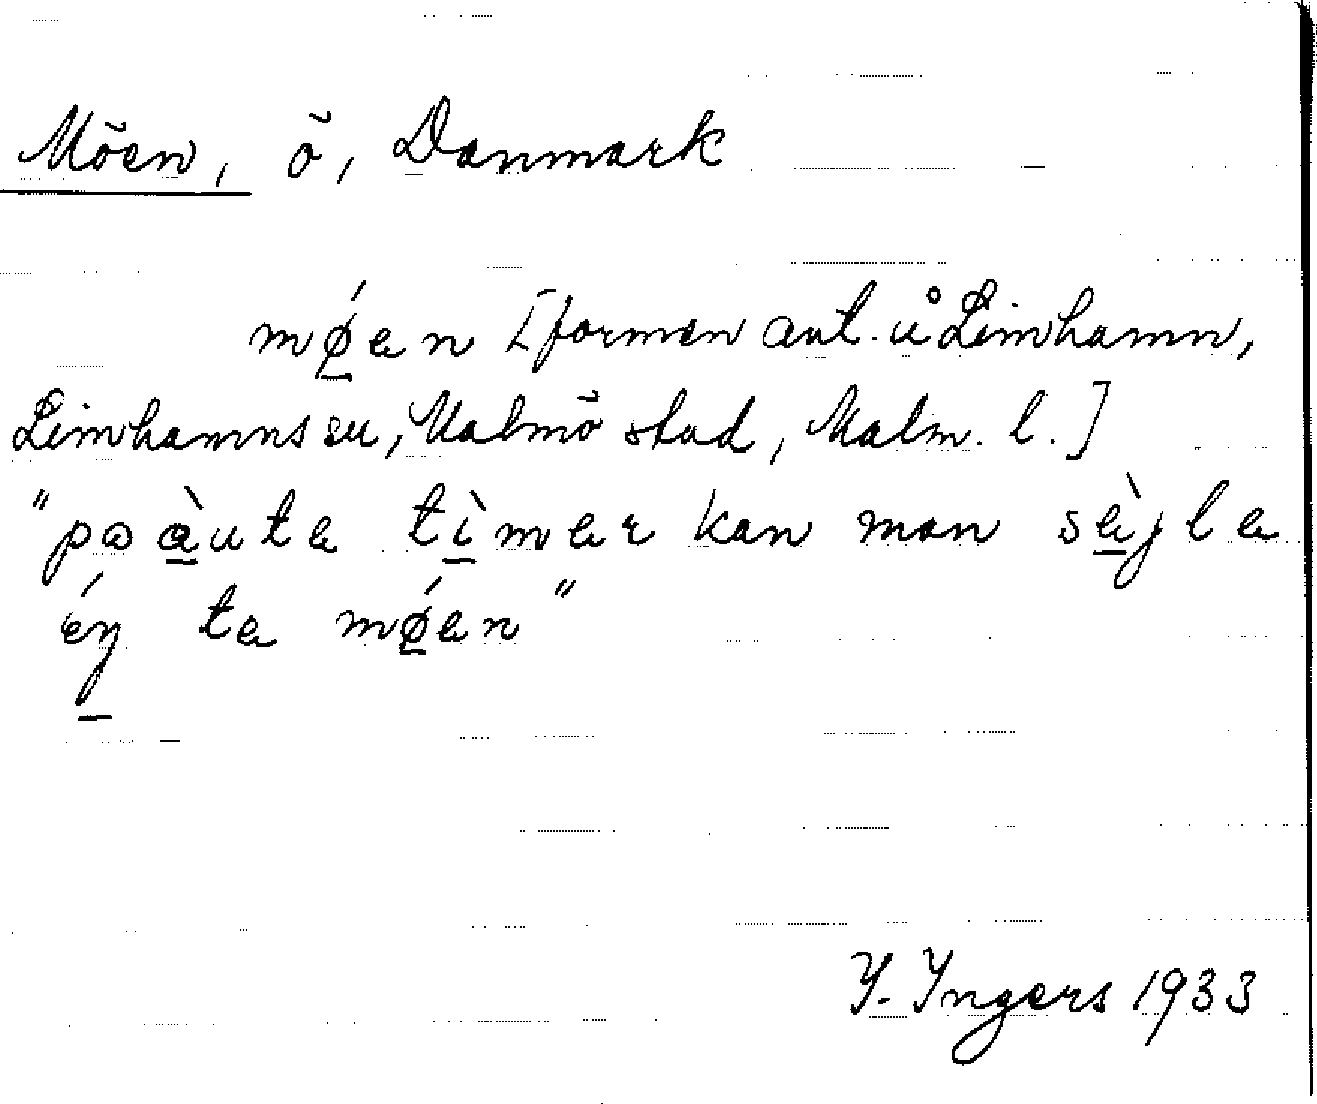 Möen, ö, Danmark
mǿen [formen ant. i Limhamn,
Limhamns sn, Malmö stad, Malm. l.]
"pa àuta tìmer kan man sèjla
éŋ te mǿen"
I. Ingers 1933